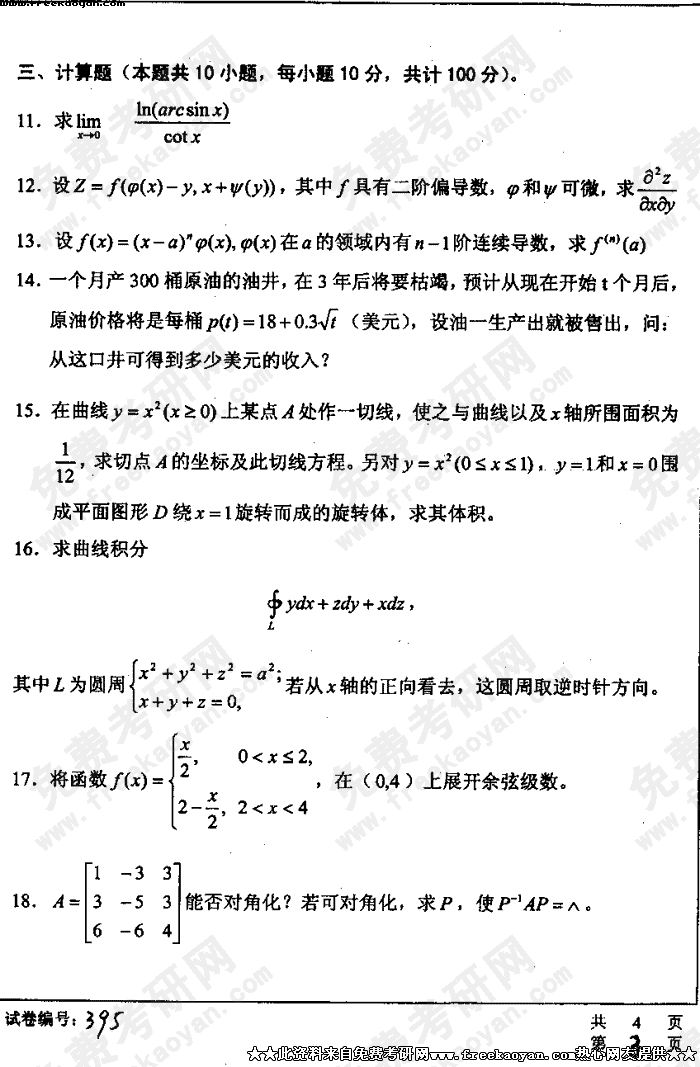 www.freekaoyan.com
三、计算题（本题共 10 小题，每小题 10 分，共计 100 分）。
11．求 lim_{x→0} ln(arcsin x)/cot x
12．设 Z = f(φ(x) − y, x + ψ(y))，其中 f 具有二阶偏导数，φ 和 ψ 可微，求 ∂²z/∂x∂y
13．设 f(x) = (x − a)ⁿφ(x), φ(x) 在 a 的领域内有 n − 1 阶连续导数，求 f⁽ⁿ⁾(a)
14．一个月产 300 桶原油的油井，在 3 年后将要枯竭，预计从现在开始 t 个月后，
原油价格将是每桶 p(t) = 18 + 0.3√t （美元），设油一生产出就被售出，问：
从这口井可得到多少美元的收入？
15．在曲线 y = x² (x ≥ 0) 上某点 A 处作一切线，使之与曲线以及 x 轴所围面积为
1/12，求切点 A 的坐标及此切线方程。另对 y = x² (0 ≤ x ≤ 1)，y = 1 和 x = 0 围
成平面图形 D 绕 x = 1 旋转而成的旋转体，求其体积。
16．求曲线积分
∮_L ydx + zdy + xdz，
其中 L 为圆周 { x² + y² + z² = a²; x + y + z = 0, 若从 x 轴的正向看去，这圆周取逆时针方向。
17．将函数 f(x) = { x/2, 0 < x ≤ 2, 2 − x/2, 2 < x < 4 ，在（0,4）上展开余弦级数。
18．A = [1 −3 3; 3 −5 3; 6 −6 4] 能否对角化？若可对角化，求 P，使 P⁻¹AP = ∧。
试卷编号：395
共 4 页
第 3 页
★★此资料来自免费考研网www.freekaoyan.com热心网友提供★★